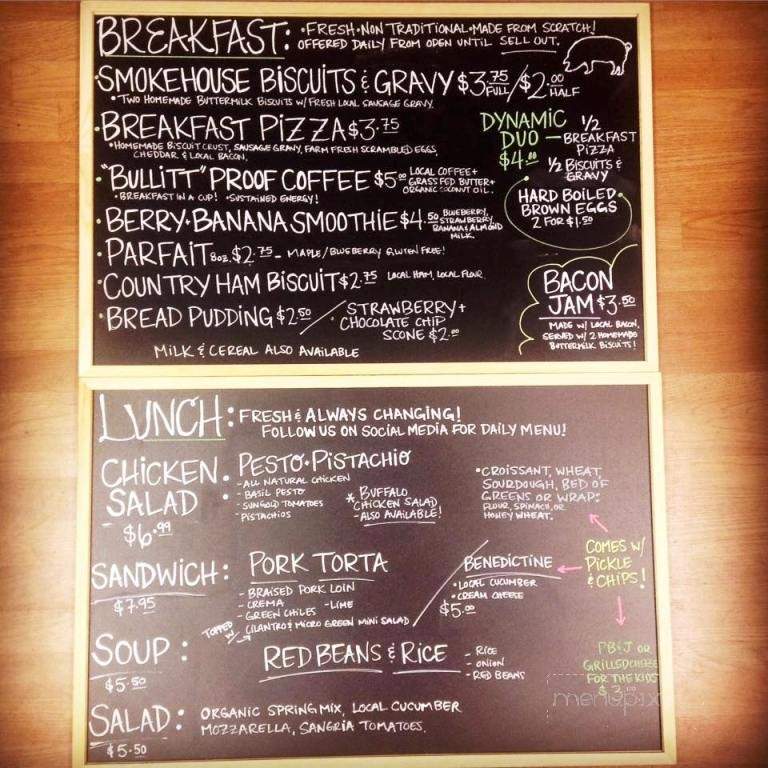 BREAKFAST: •FRESH•NON TRADITIONAL•MADE FROM SCRATCH!
OFFERED DAILY FROM OPEN UNTIL SELL OUT.
•SMOKEHOUSE BISCUITS & GRAVY $3.75 FULL/$2.00 HALF
•TWO HOMEMADE BUTTERMILK BISCUITS W/ FRESH LOCAL SAUSAGE GRAVY.
•BREAKFAST PIZZA $3.75
•HOMEMADE BISCUIT CRUST, SAUSAGE GRAVY, FARM FRESH SCRAMBLED EGGS,
CHEDDAR & LOCAL BACON.
DYNAMIC DUO — $4.00
1/2 BREAKFAST PIZZA
1/2 BISCUITS & GRAVY
•"BULLITT" PROOF COFFEE $5.00 LOCAL COFFEE+
GRASS FED BUTTER+
ORGANIC COCONUT OIL.
•BREAKFAST IN A CUP! •SUSTAINED ENERGY!
HARD BOILED
BROWN EGGS
2 FOR $1.50
•BERRY•BANANA SMOOTHIE $4.50 BLUEBERRY,
STRAWBERRY,
BANANA & ALMOND
MILK.
•PARFAIT 8oz. $2.75 - MAPLE/BLUEBERRY GLUTEN FREE!
•COUNTRY HAM BISCUIT $2.75 LOCAL HAM, LOCAL FLOUR.
•BREAD PUDDING $2.50 / •STRAWBERRY+
CHOCOLATE CHIP
SCONE $2.00
BACON
JAM $3.50
MADE W/ LOCAL BACON,
SERVED W/ 2 HOMEMADE
BUTTERMILK BISCUITS!
MILK & CEREAL ALSO AVAILABLE
LUNCH: FRESH & ALWAYS CHANGING!
FOLLOW US ON SOCIAL MEDIA FOR DAILY MENU!
CHICKEN SALAD:
$6.99
PESTO•PISTACHIO
-ALL NATURAL CHICKEN
-BASIL PESTO
-SUNGOLD TOMATOES
-PISTACHIOS
* BUFFALO
CHICKEN SALAD
-ALSO AVAILABLE!
•CROISSANT, WHEAT,
SOURDOUGH, BED OF
GREENS OR WRAP:
FLOUR, SPINACH, OR
HONEY WHEAT.
COMES W/
PICKLE
& CHIPS!
SANDWICH:
$7.95
PORK TORTA
-BRAISED PORK LOIN
-CREMA -LIME
-GREEN CHILES
TOPPED W/ CILANTRO & MICRO GREEN MINI SALAD
BENEDICTINE
•LOCAL CUCUMBER
•CREAM CHEESE
$5.00
PB&J OR
GRILLED CHEESE
FOR THE KIDS
$3.00
SOUP:
$5.50
RED BEANS & RICE
-RICE
-ONION
-RED BEANS
SALAD:
$5.50
ORGANIC SPRING MIX, LOCAL CUCUMBER
MOZZARELLA, SANGRIA TOMATOES.
menupix